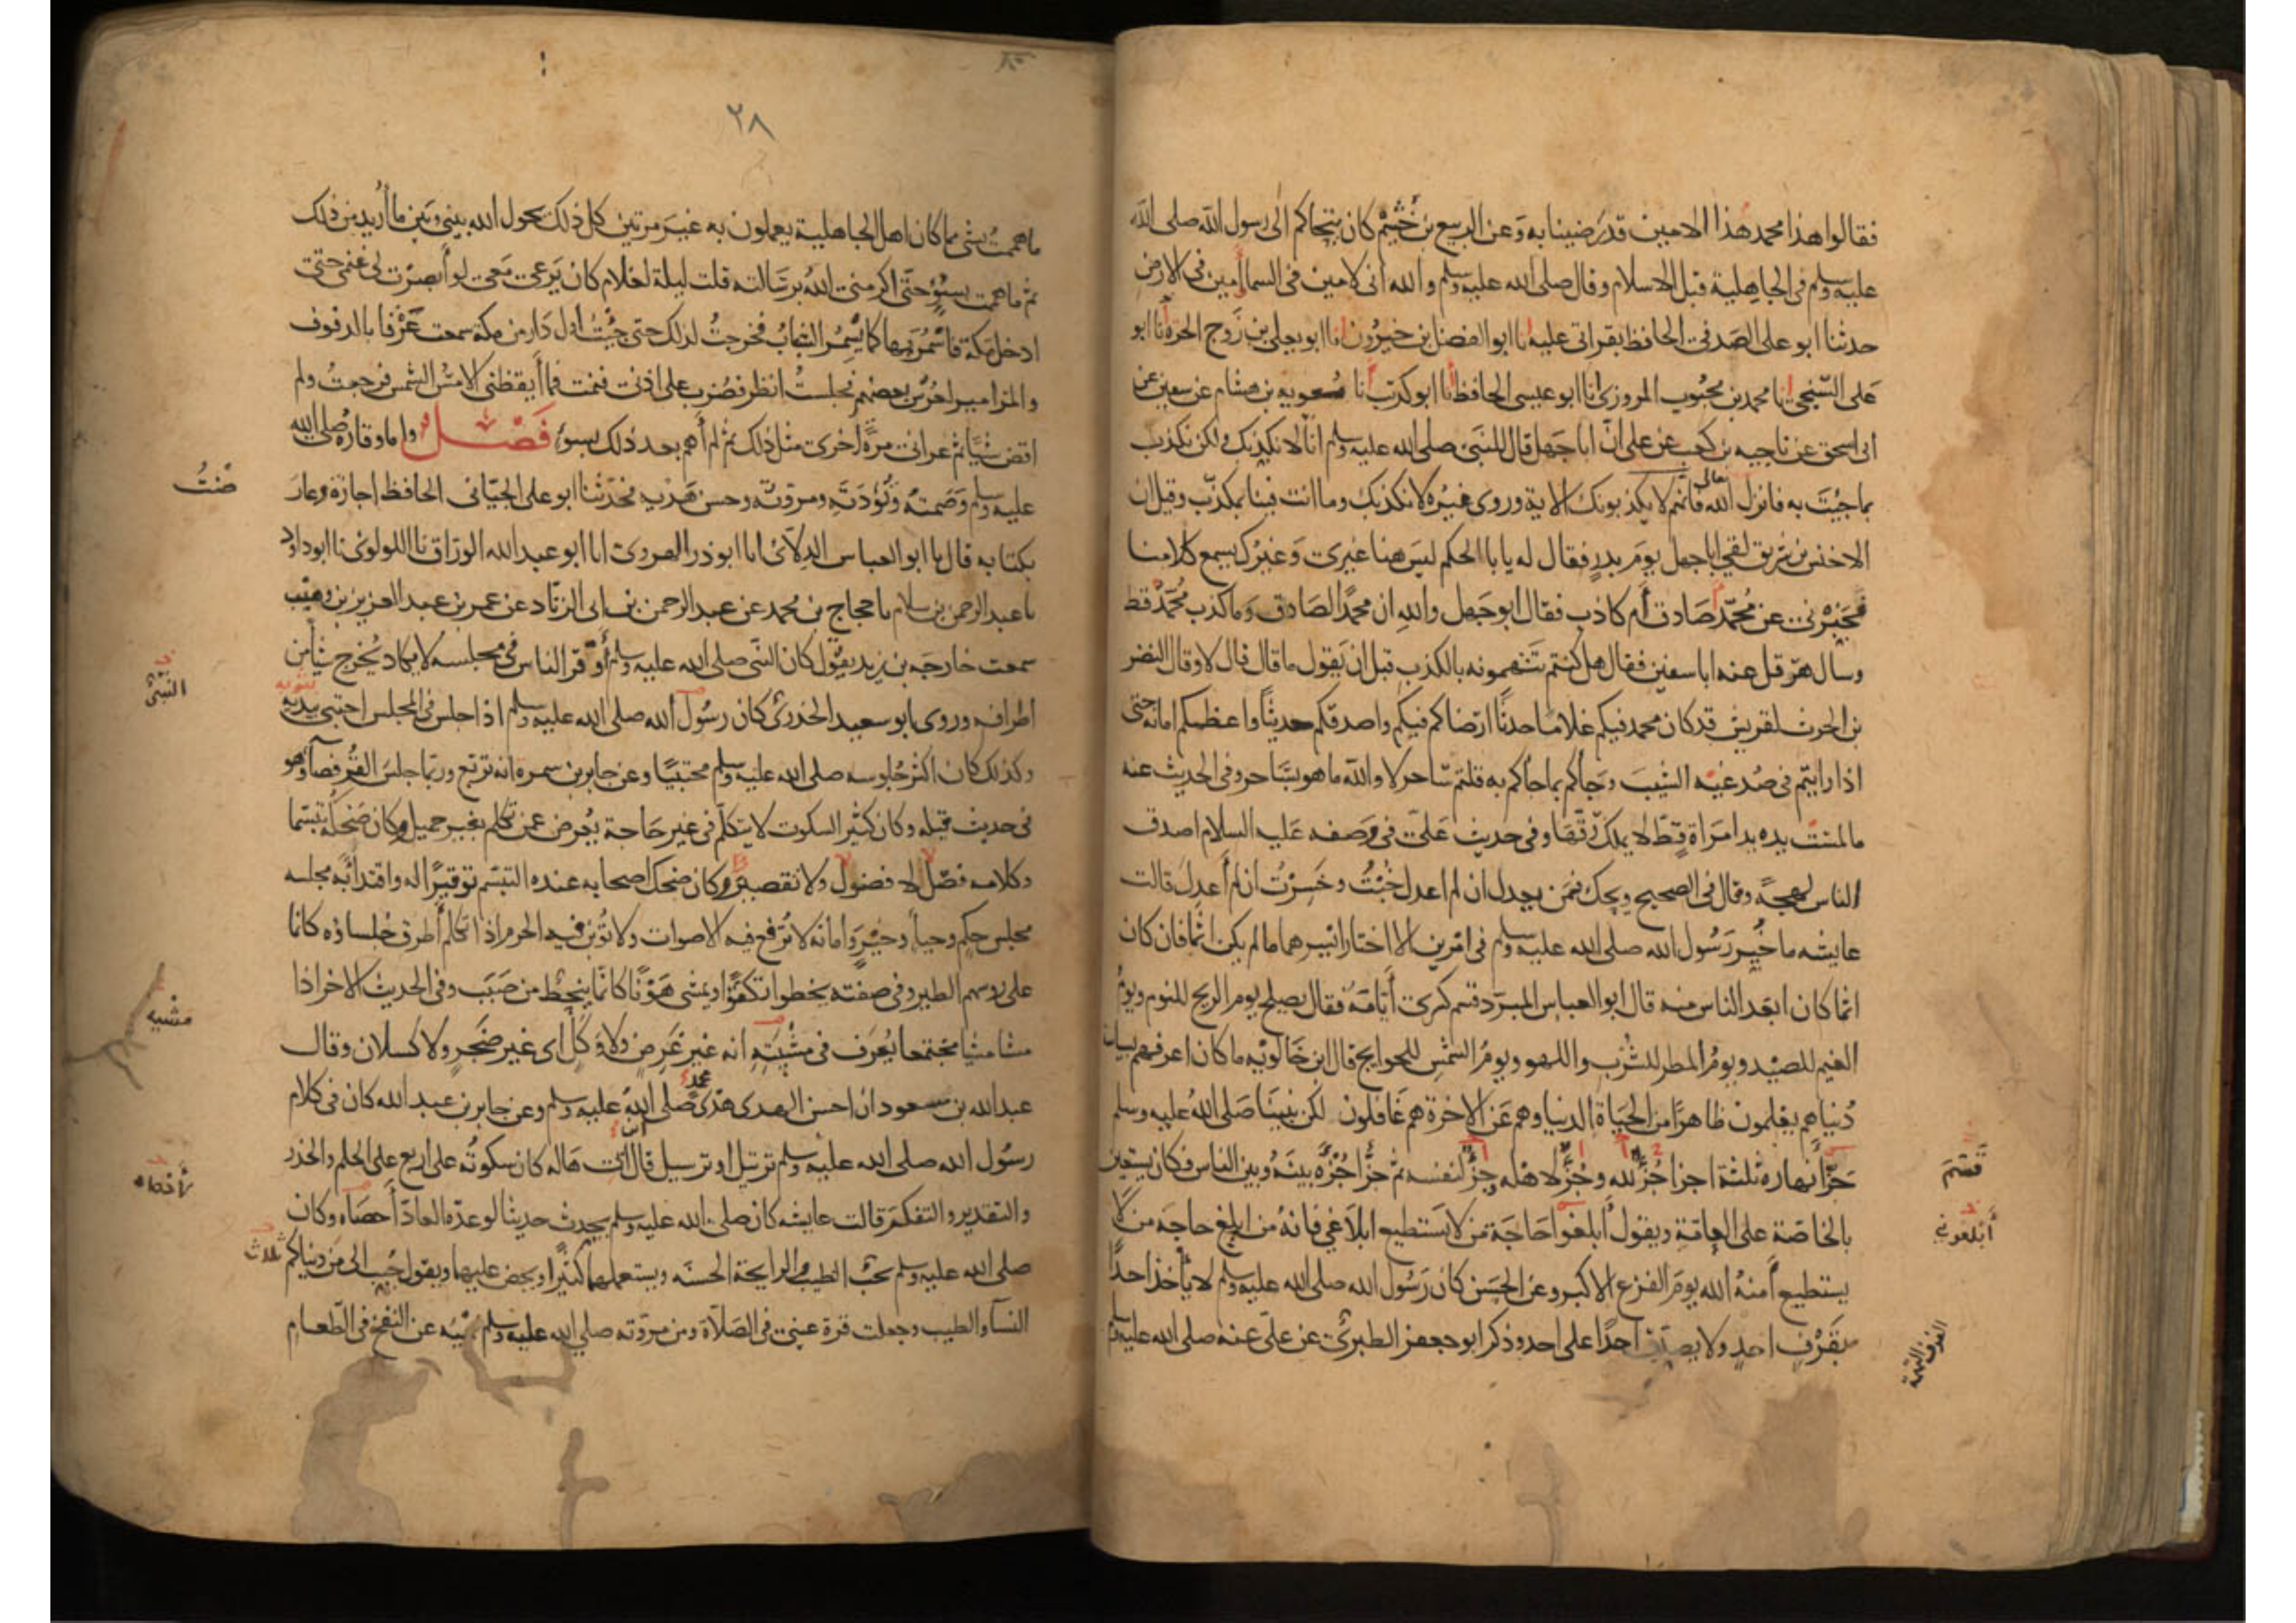 فقالوا هذا محمد هذا الامين قد رضينا به وعن الربيع بن خثيم كان يتحاكم الى رسول الله صلى الله
عليه وسلم فى الجاهلية قبل الاسلام وقال صلى الله عليه وسلم والله انى لامين فى السما أمين فى الارض
حدثنا ابو على الصدفى الحافظ بقراتى عليه نا ابو الفضل بن خيرون نا ابو يعلى بن زوج الحرة نا ابو
على السنجى نا محمد بن محبوب المروزى نا ابو عيسى الحافظ نا ابو كريب نا معوية بن هشام عن سفين عن
ابى اسحق عن ناجيه بن كعب عن على ان ابا جهل قال للنبى صلى الله عليه وسلم انا لا نكذبك ولكن نكذب
بما جيت به فانزل الله تعالى فانهم لا يكذبونك الاية وروى غيره لا نكذبك وما انت فينا بمكذب وقيل ان
الاخنس بن شريق لقى ابا جهل يوم بدر فقال له يابا الحكم ليس هنا غيرى وغيرك يسمع كلامنا
تخبرنى عن محمد صادق أم كاذب فقال ابو جهل والله ان محمدا لصادق وما كذب محمد قط
وسال هرقل عنه ابا سفين فقال هل كنتم تتهمونه بالكذب قبل ان يقول ما قال قال لا وقال النضر
بن الحرث لقريش قد كان محمد فيكم غلاما حدثا ارضاكم فيكم واصدقكم حديثا واعظمكم امانة حتى
اذا رايتم فى صدغيه الشيب وجاكم بما جاكم به قلتم ساحر لا والله ما هو بساحر وفى الحديث عنه
ما لمست يده يد امراة قط لا يملك رقها وفى حديث على فى وصفه عليه السلام اصدق
الناس لهجة وقال فى الصحيح ويحك فمن يعدل ان لم اعدل خبت وخسرت ان لم أعدل قالت
عايشه ما خير رسول الله صلى الله عليه وسلم فى امرين الا اختار ايسرهما ما لم يكن اثما فان كان
اثما كان ابعد الناس منه قال ابو العباس المبرد قسم كسرى أيامه فقال يصلح يوم الريح للنوم ويوم
الغيم للصيد ويوم المطر للشرب واللهو ويوم الشمس للحوايج قال ابن خالويه ما كان اعرفهم بسياسة
دنياهم يعلمون ظاهرا من الحياة الدنيا وهم عن الاخرة هم غافلون لكن نبينا صلى الله عليه وسلم
جزا نهاره ثلثة اجزا جزا لله وجزا لاهله وجزا لنفسه ثم جزا جزه بينه وبين الناس فكان يستعين
قسم
بالخاصة على العامة ويقول أبلغوا حاجة من لا يستطيع ابلاغى فانه من ابلغ حاجة من لا
أبلغونى
يستطيع أمنه الله يوم الفزع الاكبر وعن الحسن كان رسول الله صلى الله عليه وسلم لا يأخذ احدا
بقرف احد ولا يصدق احدا على احد وذكر ابو جعفر الطبرى عن على عنه صلى الله عليه وسلم
القرف التهمة
٢٨
ما هممت بشى مما كان اهل الجاهلية يعملون به غير مرتين كل ذلك يحول الله بينى وبين ما أريد من ذلك
ثم ما هممت بسوء حتى اكرمنى الله برسالته قلت ليلة لغلام كان يرعى معى لو أبصرت لى غنمى حتى
ادخل مكة فاسمر بها كما يسمر الشباب فخرجت لذلك حتى جئت اول دار من مكة سمعت عزفا بالدفوف
والمزامير لعرس بعضهم فجلست انظر فضرب على اذنى فنمت فما أيقظنى الا مس الشمس فرجعت ولم
اقض شيا ثم عرانى مرة اخرى مثل ذلك ثم لم أهم بعد ذلك بسوء فصل واما وقاره صلى الله
عليه وسلم وصمته وتؤدته ومروته وحسن هديه فحدثنا ابو على الجيانى الحافظ اجازة وعارضت
بكتابه قال نا ابو العباس الدلائى انا ابو ذر الهروى انا ابو عبد الله الوراق نا اللولوى نا ابو داود
نا عبد الرحمن بن سلام نا حجاج بن محمد عن عبد الرحمن بن ابى الزناد عن عمر بن عبد العزيز بن وهيب
سمعت خارجة بن زيد يقول كان النبى صلى الله عليه وسلم أوقر الناس فى مجلسه لا يكاد يخرج شيأ من
النبى
اطرافه وروى ابو سعيد الخدرى كان رسول الله صلى الله عليه وسلم اذا جلس فى المجلس احتبى بيديه
وكذلك كان اكثر جلوسه صلى الله عليه وسلم محتبيا وعن جابر بن سمرة انه تربع وربما جلس القرفصآ وهو
فى حديث قيله وكان كثير السكوت لا يتكلم فى غير حاجة يعرض عمن تكلم بغير جميل وكان ضحكه تبسما
وكلامه فصل لا فضول ولا تقصير وكان ضحك اصحابه عنده التبسم توقيرا له واقتداء به مجلسه
مجلس حكم وحياء وخير وامانة لا ترفع فيه الاصوات ولا تؤبن فيه الحرم اذا تكلم أطرق جلساؤه كانما
على روسهم الطير وفى صفته يخطوا تكفؤا ويمشى هونا كانما ينحط من صبب وفى الحديث الاخر اذا
مشا مشا مجتمعا يعرف فى مشيته انه غير غرض ولا وكل اى غير ضجر ولا كسلان وقال
مشيه
عبد الله بن مسعود ان احسن الهدى هدى محمد صلى الله عليه وسلم وعن جابر بن عبد الله كان فى كلام
رسول الله صلى الله عليه وسلم ترتيل او ترسيل قال ابن ابى هاله كان سكوته على اربع على الحلم والحذر
والتقدير والتفكر قالت عايشه كان صلى الله عليه وسلم يحدث حديثا لو عده العاد أحصاه وكان
صلى الله عليه وسلم يحب الطيب والرايحة الحسنه ويستعملهما كثيرا ويحض عليهما ويقول حبب الى من دنياكم
ثلاث
النسآ والطيب وجعلت قرة عينى فى الصلاة ومن مروته صلى الله عليه وسلم نهيه عن النفخ فى الطعام